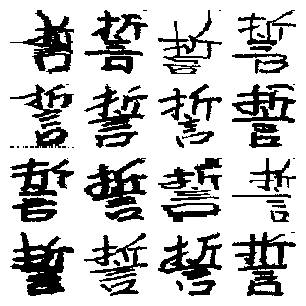 誓誓誓誓
誓誓誓誓
誓誓誓誓
誓誓誓誓